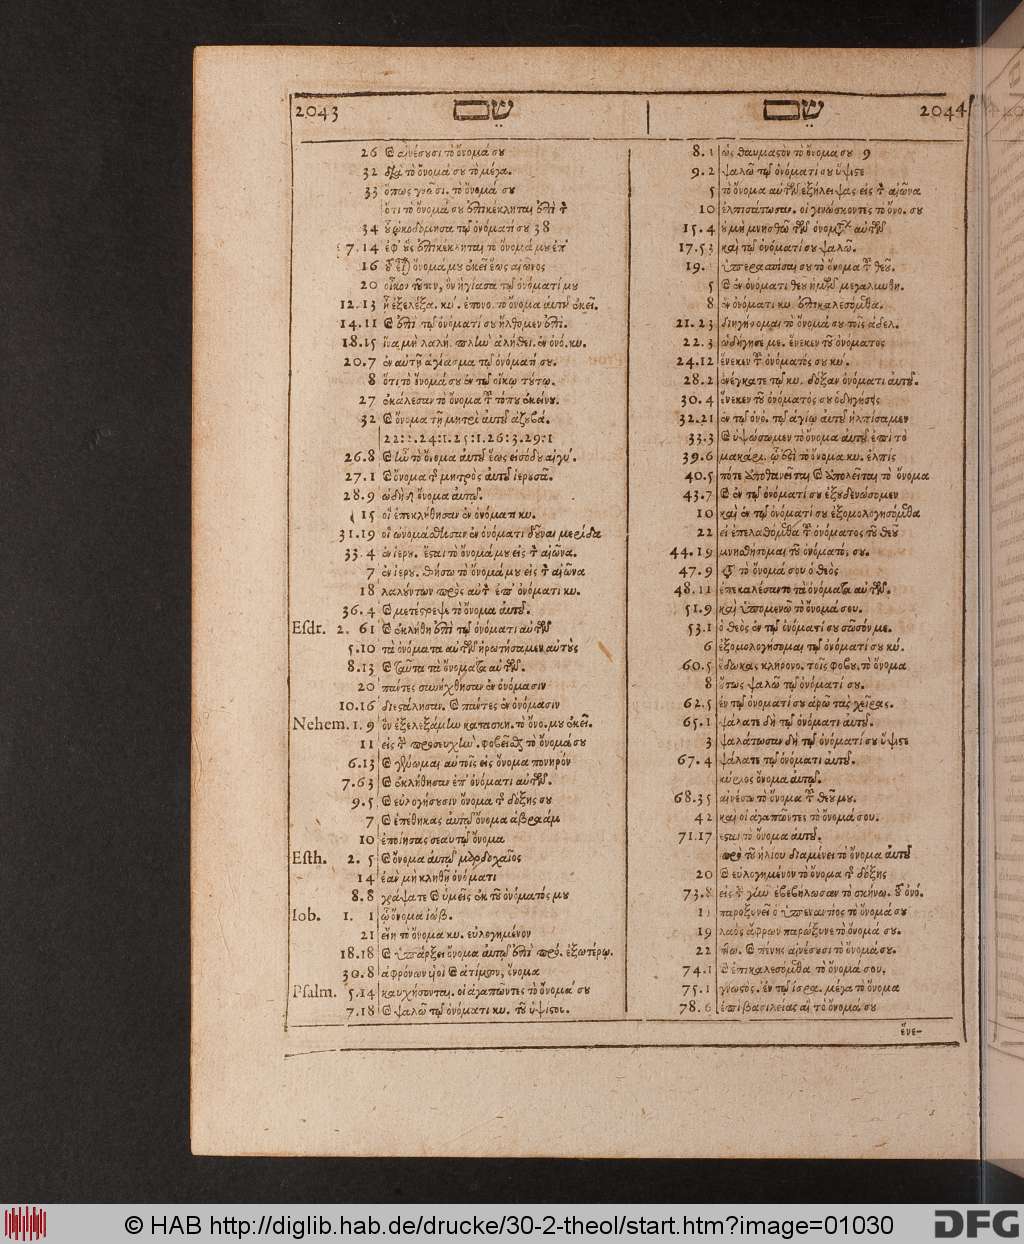 2043 שֵׁם שֵׁם 2044
26 ϗ αἰνέσουσι τὸ ὄνομά σου
32 διὰ τὸ ὄνομά σου τὸ μέγα.
33 ὅπως γνῶσι. τὸ ὄνομά σου
ὅτι τὸ ὄνομά σου ἐπικέκληται ἐπὶ τ
34 ᾠκοδόμησα τῷ ὀνόματί σου 38
7.14 ἐφ' οὓς ἐπικέκληται τὸ ὄνομά μου ἐπ'
16 ὄνομά μου ἐκεῖ ἕως αἰῶνος
20 οἶκον τοῦτον, ὃν ἡγίασα τῷ ὀνόματί μου
12.13 ἣ ἐξελέξα. κυ. ἐπονο. τὸ ὄνομα αὐτοῦ ἐκεῖ.
14.11 ϗ ἐπὶ τῷ ὀνόματί σου ἤλθομεν ἐπὶ.
18.15 ἵνα μὴ λαλη. πλὴν ἀλήθει. ἐν ὀνό. κυ.
20.7 ἐν αὐτῇ ἁγίασμα τῷ ὀνόματί σου.
8 ὅτι τὸ ὄνομά σου ἐν τῷ οἴκῳ τούτῳ.
27 ἐκάλεσαν τὸ ὄνομα τοῦ τόπου ἐκείνου.
32 ϗ ὄνομα τῇ μητρὶ αὐτοῦ ἀζουβά.
22:2.24:1.25:1.26:3.29:1
26.8 ϗ ἦν τὸ ὄνομα αὐτοῦ ἕως εἰσόδου αἰγύ.
27.1 ϗ ὄνομα τῆς μητρὸς αὐτοῦ ἱερουσᾶ.
28.9 ὠδὴδ ὄνομα αὐτῷ.
15 οἳ ἐπεκλήθησαν ἐν ὀνόματι κυ.
31.19 οἳ ὠνομάσθησαν ἐν ὀνόματι δοῦναι μερίδα
33.4 ἐν ἱερου. ἔσται τὸ ὄνομά μου εἰς τ αἰῶνα.
7 ἐν ἱερου. θήσω τὸ ὄνομά μου εἰς τ αἰῶνα
18 λαλούντων πρὸς αὐτ ἐπ' ὀνόματι κυ.
36.4 ϗ μετέστρεψε τὸ ὄνομα αὐτοῦ.
Esdr. 2. 61 ϗ ἐκλήθη ἐπὶ τῷ ὀνόματι αὐτῶν
5.10 τὰ ὀνόματα αὐτῶν ἠρωτήσαμεν αὐτούς
8.13 ϗ ταῦτα τὰ ὀνόματα αὐτῶν.
20 πάντες συνήχθησαν ἐν ὀνόμασιν
10.16 διεστάλησαν. ϗ πάντες ἐν ὀνόμασιν
Nehem. 1. 9 ὃν ἐξελεξάμην κατασκη. τὸ ὄνο. μου ἐκεῖ.
11 εἰς τ προσευχὴν. φοβεῖσθαι τὸ ὄνομά σου
6.13 ϗ γένωμαι αὐτοῖς εἰς ὄνομα πονηρόν
7.63 ϗ ἐκλήθησαν ἐπ' ὀνόματι αὐτῶν.
9.5 ϗ εὐλογήσουσιν ὄνομα τῆς δόξης σου
7 ϗ ἐπέθηκας αὐτῷ ὄνομα ἀβραάμ
10 ἐποίησας σεαυτῷ ὄνομα
Esth. 2. 5 ϗ ὄνομα αὐτῷ μαρδοχαῖος
14 ἐὰν μὴ κληθῇ ὀνόματι
8.8 γράψατε ϗ ὑμεῖς ἐκ τοῦ ὀνόματός μου
Iob. 1. 1 ᾧ ὄνομα ἰώβ.
21 εἴη τὸ ὄνομα κυ. εὐλογημένον
18.18 ϗ ὑπάρξει ὄνομα αὐτῷ ἐπὶ πρό. ἐξωτέρῳ.
30.8 ἀφρόνων υἱοὶ ϗ ἀτίμων, ὄνομα
Psalm. 5.14 καυχήσονται. οἱ ἀγαπῶντες τὸ ὄνομά σου
7.18 ϗ ψαλῶ τῷ ὀνόματι κυ. τοῦ ὑψίστου.
8.1 ὡς θαυμαστὸν τὸ ὄνομα σου 9
9.2 ψαλῶ τῷ ὀνόματί σου ὕψιστε
5 τὸ ὄνομα αὐτῶν ἐξήλειψας εἰς τ αἰῶνα
10 ἐλπισάτωσαν. οἱ γινώσκοντες τὸ ὄνο. σου
15.4 οὐ μὴ μνησθῶ τῶν ὀνομάτων αὐτῶν
17.53 καὶ τῷ ὀνόματί σου ψαλῶ.
19. ὑπερασπίσαι σου τὸ ὄνομα τοῦ θεοῦ.
5 ϗ ἐν ὀνόματι θεοῦ ἡμῶν μεγαλυνθη.
8 ἐν ὀνόματι κυ ἐπικαλεσόμεθα.
21.23 διηγήσομαι τὸ ὄνομά σου τοῖς ἀδελ.
22.3 ὡδήγησέ με. ἕνεκεν τοῦ ὀνόματος
24.12 ἕνεκεν τοῦ ὀνόματός σου κύ.
28.2 ἐνέγκατε τῷ κυ. δόξαν ὀνόματι αὐτοῦ.
30.4 ἕνεκεν τοῦ ὀνόματός σου ὁδηγήσης
32.21 ἐν τῷ ὀνό. τῷ ἁγίῳ αὐτοῦ ἠλπίσαμεν
33.3 ϗ ὑψώσωμεν τὸ ὄνομα αὐτοῦ ἐπὶ τὸ
39.6 μακάρι. οὗ ἐστὶ τὸ ὄνομα κυ. ἐλπὶς
40.5 πότε ἀποθανεῖται ϗ ἀπολεῖται τὸ ὄνομα
43.7 ϗ ἐν τῷ ὀνόματί σου ἐξουδενώσομεν
10 καὶ ἐν τῷ ὀνόματί σου ἐξομολογησόμεθα
22 εἰ ἐπελαθόμεθα τοῦ ὀνόματος τοῦ θεοῦ
44.19 μνησθήσομαι τοῦ ὀνόματός σου.
47.9 κατὰ τὸ ὄνομά σου ὁ θεὸς
48.11 ἐπεκαλέσαντο τὰ ὀνόματα αὐτῶν.
51.9 καὶ ὑπομενῶ τὸ ὄνομά σου.
53.1 ὁ θεὸς ἐν τῷ ὀνόματί σου σῶσόν με.
6 ἐξομολογήσομαι τῷ ὀνόματί σου κύ.
60.5 ἔδωκας κληρονο. τοῖς φοβου. τὸ ὄνομα
8 οὕτως ψαλῶ τῷ ὀνόματί σου.
62.5 ἐν τῷ ὀνόματί σου ἀρῶ τὰς χεῖρας.
65.1 ψάλατε δὴ τῷ ὀνόματι αὐτοῦ.
3 ψαλάτωσαν δὴ τῷ ὀνόματί σου ὕψιστε
67.4 ψάλατε τῷ ὀνόματι αὐτοῦ.
κύριος ὄνομα αὐτῷ.
68.35 αἰνέσω τὸ ὄνομα τοῦ θεοῦ μου.
42 καὶ οἱ ἀγαπῶντες τὸ ὄνομά σου.
71.17 ἔσται τὸ ὄνομα αὐτοῦ.
πρὸ τοῦ ἡλίου διαμένει τὸ ὄνομα αὐτοῦ
20 ϗ εὐλογημένον τὸ ὄνομα τῆς δόξης
73.8 εἰς τ γῆν ἐβεβήλωσαν τὸ σκήνω. τοῦ ὀνό.
παροξυνεῖ ὁ ὑπεναντίος τὸ ὄνομά σου
19 λαὸς ἄφρων παρώξυνε τὸ ὄνομά σου.
22 πτω. ϗ πένης αἰνέσουσι τὸ ὄνομά σου.
74.1 ϗ ἐπικαλεσόμεθα τὸ ὄνομά σου.
75.1 γνωστὸς. ἐν τῷ ἰσρα. μέγα τὸ ὄνομα
78.6 ἐπὶ βασιλείας αἳ τὸ ὄνομά σου
ἕνε-
© HAB http://diglib.hab.de/drucke/30-2-theol/start.htm?image=01030 DFG